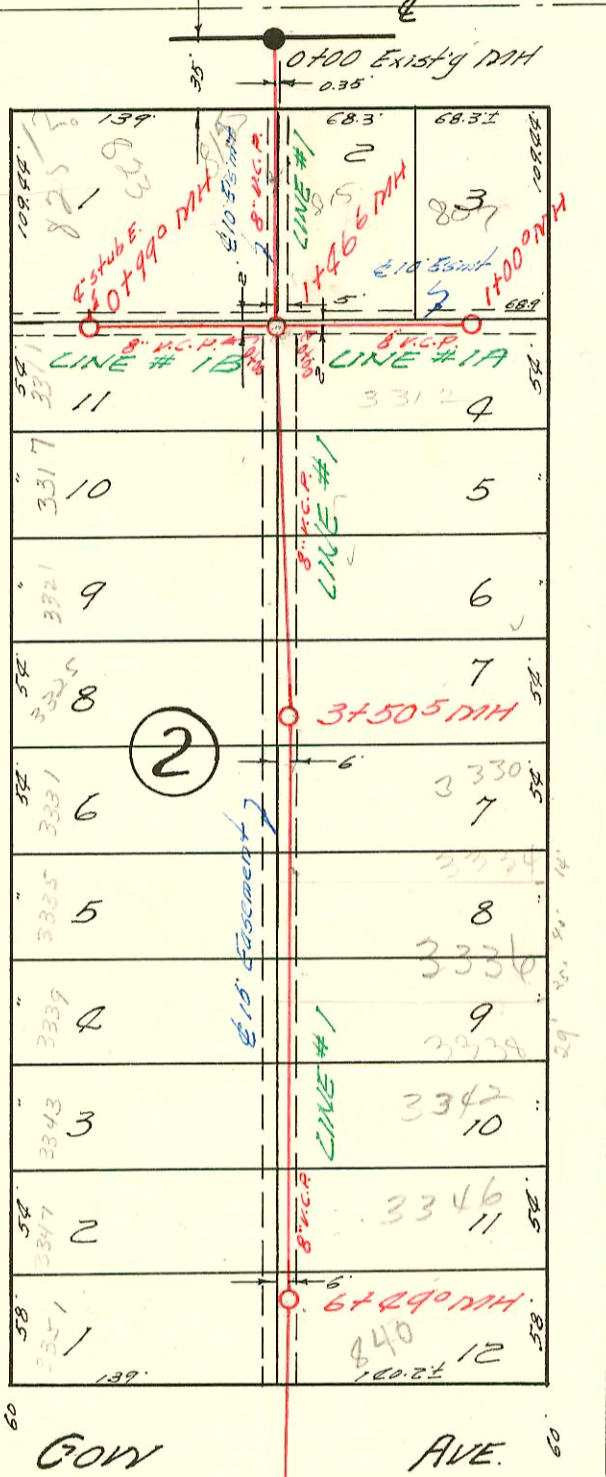 ℄
0+00 Exist'g MH
35'
0.35'
139.'
68.3'
68.3'±
109.44'
109.44'
1
2
3
825
823
815
807
℄ 10' Esmt
8" V.C.P.
LINE #1
1+46⁶ MH
℄ 10' Esmt
0+99⁰ MH
& Stub E.
1+00⁰ MH
2'
5'
68.9'
8" V.C.P.
8" V.C.P.
LINE # 1B
LINE #1A
2'
54'
3311
11
3312
4
54'
"
3317
10
5
"
8" V.C.P.
LINE #1
"
3321
9
6
"
54'
3325
8
7
54'
3+50⁵ MH
2
6'
54'
3331
6
3330
7
54'
℄ 15' Easement
3334
14'
"
3335
5
8
"
3336
"
3339
4
9
"
3338
29'
LINE #1
"
3343
3
3342
10
"
54'
3347
2
3346
11
54'
8" V.C.P.
6'
6+49⁰ MH
58'
3351
1
840
12
58'
139.'
140.2'±
60'
60'
GOW AVE.